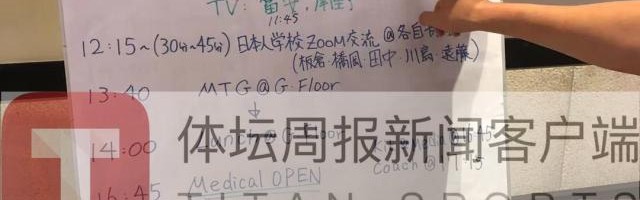 TV:
11:45
12:15~(30分~45分) 日本人学校ZOOM交流 @各自
(板倉・橋岡・田中・川島・遠藤)
13:40 MTG@G.Floor
↓
14:00 Lunch@G.Floor
Coach@
16:45 Medical OPEN
体坛周报新闻客户端
TITAN SPORTS